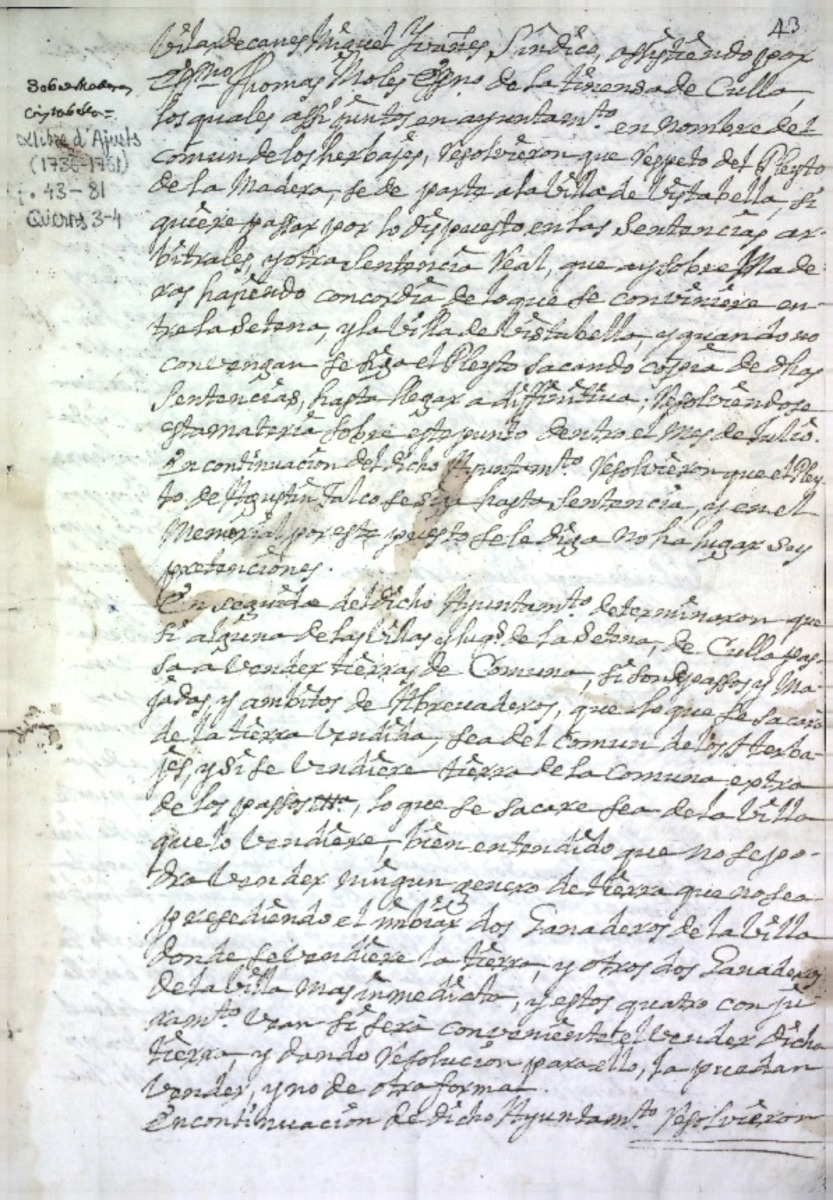 43
Vilardecanes Miguel Yvañes, Sindico, assistiendo por
Essno Thomas Moles Essno. de la tinensa de Culla,
los quales assi juntos en ayuntamto. en nombre del
comun de los herbajes, Resolvieron que respeto del Pleyto
de la Madera, se de parte a la Villa de Vistabella, si
quiere passar por lo dispuesto en las Sentencias ar-
bitrales, y otra Sentencia Real, que ay sobre Made-
ras hasiendo concordia de lo que se conviniere en-
tre la Setena, y la Villa de Vistabella, y quando no
convengan se siga el Pleyto sacando copia de dhas
Sentencias, hasta llegar a diffinitiva, Resolviendose
esta materia sobre este punto dentro el mes de Julio.
En continuacion del dicho Ayuntamto. Resolvieron que el Pley-
to de Agustin Falco se siga hasta Sentencia, y en el
Memorial por este puesto se le diga no ha lugar sus
pretenciones.
En seguida del dicho Ayuntamto. determinaron que
si alguna de las Villas y lugs. de la Setena, de Culla pas-
sa a Vender tierras de Comuna, si son de passos y Ma-
jadas, y ambitos de Abrevaderos, que lo que se sacare
de la tierra Vendida, sea del comun de los Herba-
jes, y si se Vendiere tierra de la Comuna extra
de los passos, lo que se sacare sea de la Villa
que lo Vendiere, bien entendido que no se po-
dra Vender ningun genero de tierra que no sea
presediendo el imbiar dos Ganaderos de la Villa
donde se Vendiere la tierra, y otros dos Ganaderos
de la Villa mas inmediato, y estos quatro con ju-
ramto. Vean si sera conveniente el Vender dicha
tierra, y dando Resolucion para ello, la puedan
Vender, y no de otra forma.
En continuacion de dicho Ayuntamto. Resolvieron
Sobre Maderas
Llibre d'Ajusts
(1736-1761)
f. 43-81
Quierns 3-4